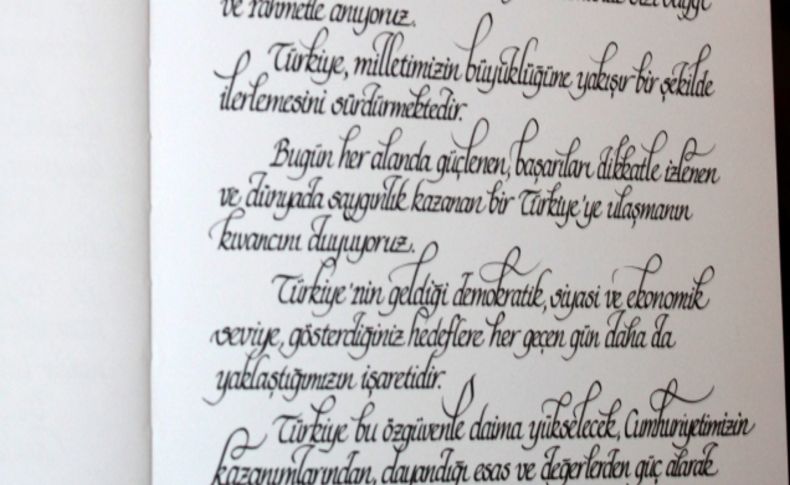 ve rahmetle anıyoruz.
Türkiye, milletimizin büyüklüğüne yakışır bir şekilde
ilerlemesini sürdürmektedir.
Bugün her alanda güçlenen, başarıları dikkatle izlenen
ve dünyada saygınlık kazanan bir Türkiye'ye ulaşmanın
kıvancını duyuyoruz.
Türkiye'nin geldiği demokratik, siyasi ve ekonomik
seviye, gösterdiğiniz hedeflere her geçen gün daha da
yaklaştığımızın işaretidir.
Türkiye bu özgüvenle daima yükselecek, Cumhuriyetimizin
kazanımlarından, dayandığı esas ve değerlerden güç alarak